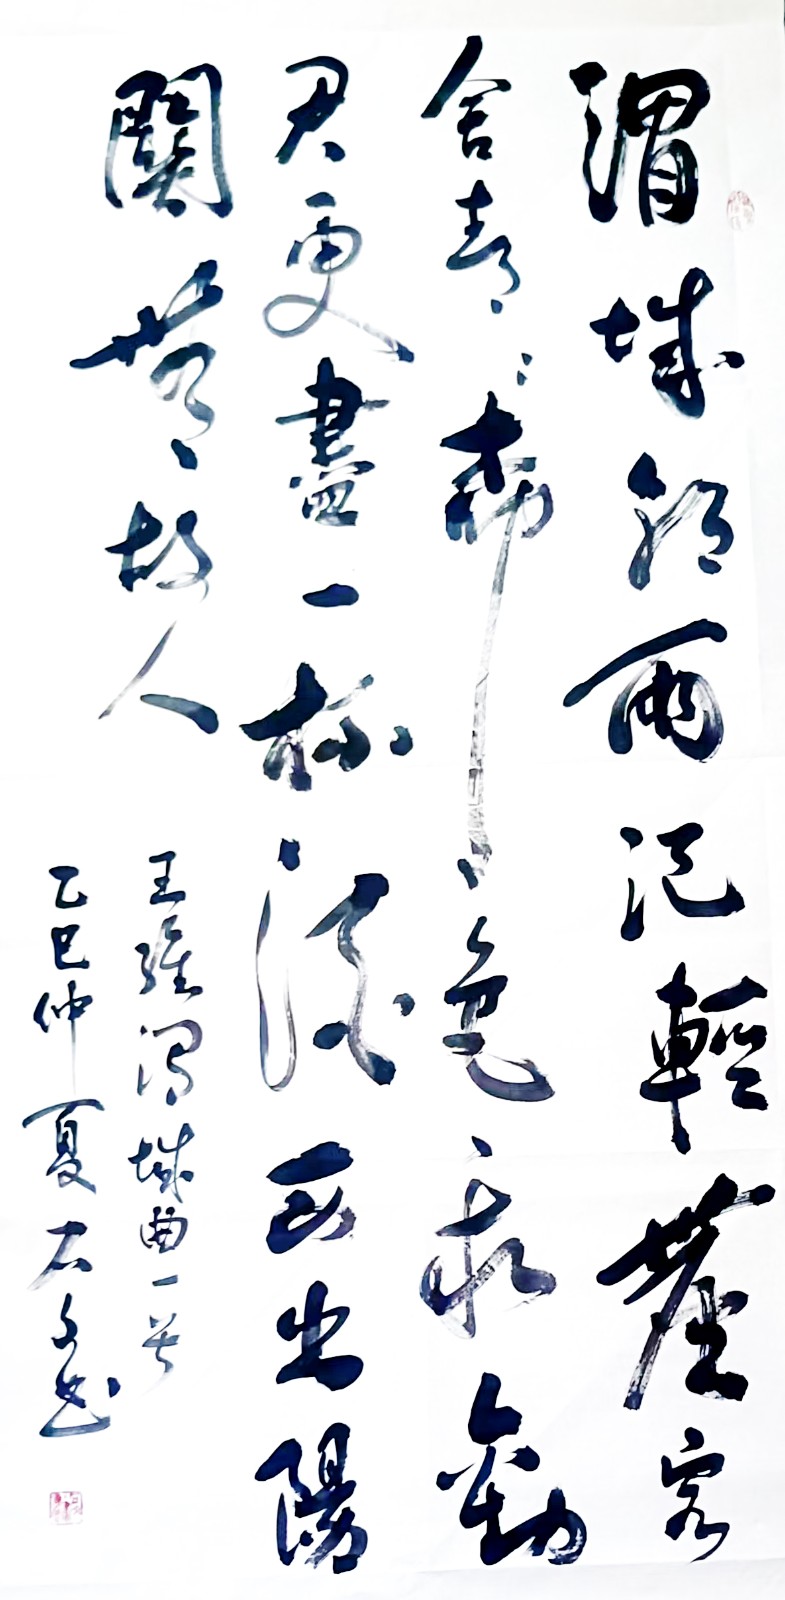 渭城朝雨浥輕塵客
舍青〻柳色新勸
君更盡一杯酒西出陽
關無故人
王維渭城曲一首
乙巳仲夏石文书